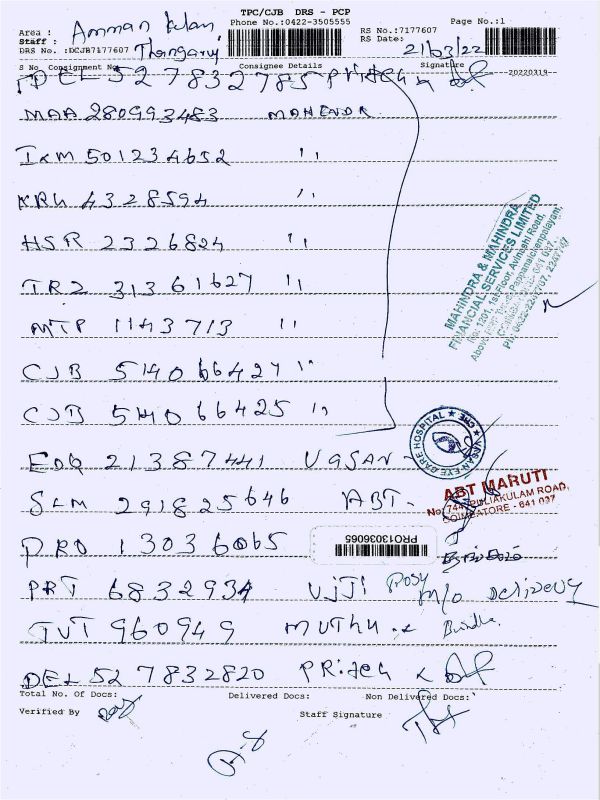 TPC/CJB DRS - PCP
Phone No.:0422-3505555 Page No.:1
Area : Amman kulam RS No.:7177607
Staff : RS Date: 21/03/22
DRS No.:DCJB7177607 Thangaraj
S No Consignment No Consignee Details Signature 20220319
DEL 527832785
MAA 280993483 MAHENDR
IXM 501234652 ''
KRU 4328594 ''
HSR 2326824 ''
TRZ 31361627 ''
MTP 1143713 ''
CJB 514066427 ''
CJB 514066425 ''
MAHINDRA & MAHINDRA
FINANCIAL SERVICES LIMITED
No: 1201, 1st Floor, Avinashi Road,
EDQ 21387441 VASAN
VASAN EYE CARE HOSPITAL ★ CBE ★
SLM 291825646 ABT-
ABT MARUTI
No: 744, PULIAKULAM ROAD,
COIMBATORE - 641 037
PRO 13036065 PRO13036065
PRT 6832934 VIJI Posy m/o delivery
TVT 960949 MUTHU
DEL 527832820
Total No. Of Docs: Delivered Docs: Non Delivered Docs:
Verified By Staff Signature